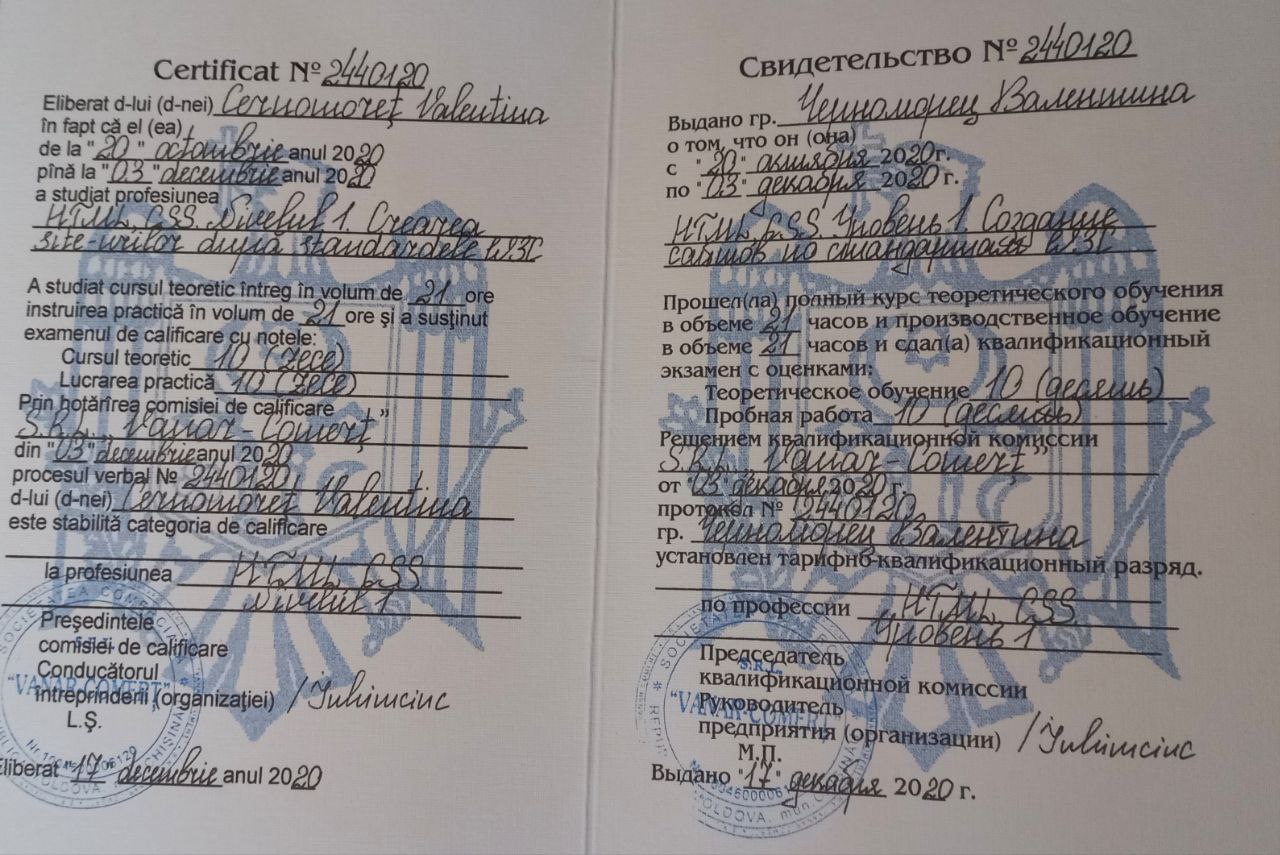 Certificat № 2440120
Eliberat d-lui (d-nei) Cernomoreţ Valentina
în fapt că el (ea)
de la "20" octombrie anul 2020
pînă la "03" decembrie anul 2020
a studiat profesiunea
HTML, CSS. Nivelul 1. Crearea
site-urilor după standardele W3C
A studiat cursul teoretic întreg în volum de 21 ore
instruirea practică în volum de 21 ore şi a susţinut
examenul de calificare cu notele:
Cursul teoretic 10 (zece)
Lucrarea practică 10 (zece)
Prin hotărîrea comisiei de calificare
S.R.L. „Vanar-Comerţ”
din "03" decembrie anul 2020
procesul verbal № 2440120
d-lui (d-nei) Cernomoreţ Valentina
este stabilită categoria de calificare
la profesiunea HTML, CSS
Nivelul 1
Preşedintele
comisiei de calificare
Conducătorul
întreprinderii (organizaţiei)
L.Ş.
"VANAR-COMERŢ"
Eliberat "17" decembrie anul 2020
Свидетельство № 2440120
Выдано гр. Черноморец Валентина
о том, что он (она)
с "20" октября 2020 г.
по "03" декабря 2020 г.
HTML, CSS Уровень 1. Создание
сайтов по стандартам W3C
Прошел(ла) полный курс теоретического обучения
в объеме 21 часов и производственное обучение
в объеме 21 часов и сдал(а) квалификационный
экзамен с оценками:
Теоретическое обучение 10 (десять)
Пробная работа 10 (десять)
Решением квалификационной комиссии
S.R.L. „Vanar-Comerţ”
от "03" декабря 2020 г.
протокол № 2440120
гр. Черноморец Валентина
установлен тарифно-квалификационный разряд.
по профессии HTML, CSS
Уровень 1
Председатель
квалификационной комиссии
Руководитель
предприятия (организации)
М.П.
S.R.L.
"VANAR-COMERŢ"
Выдано "17" декабря 2020 г.